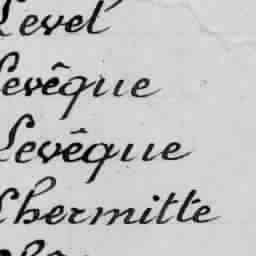 Level
Levêque
Levêque
Lhermitte